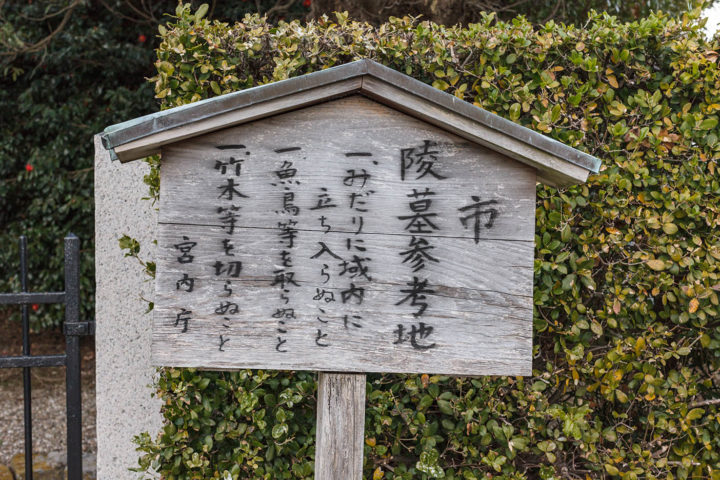 市
陵墓参考地
一、みだりに域内に
立ち入らぬこと
一、魚鳥等を取らぬこと
一、竹木等を切らぬこと
宮内庁